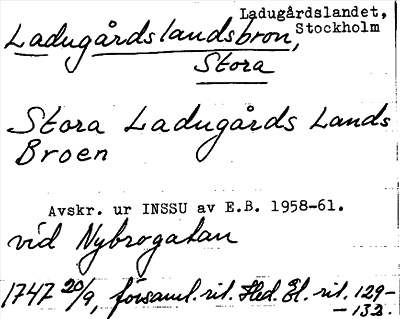 Ladugårdslandet,
Stockholm
Ladugårdslandsbron,
Stora
Stora Ladugårds Lands
Broen
Avskr. ur INSSU av E.B. 1958-61.
vid Nybrogatan
1747 20/9, församl. rit. Hed. El. rit. 129-
-132.